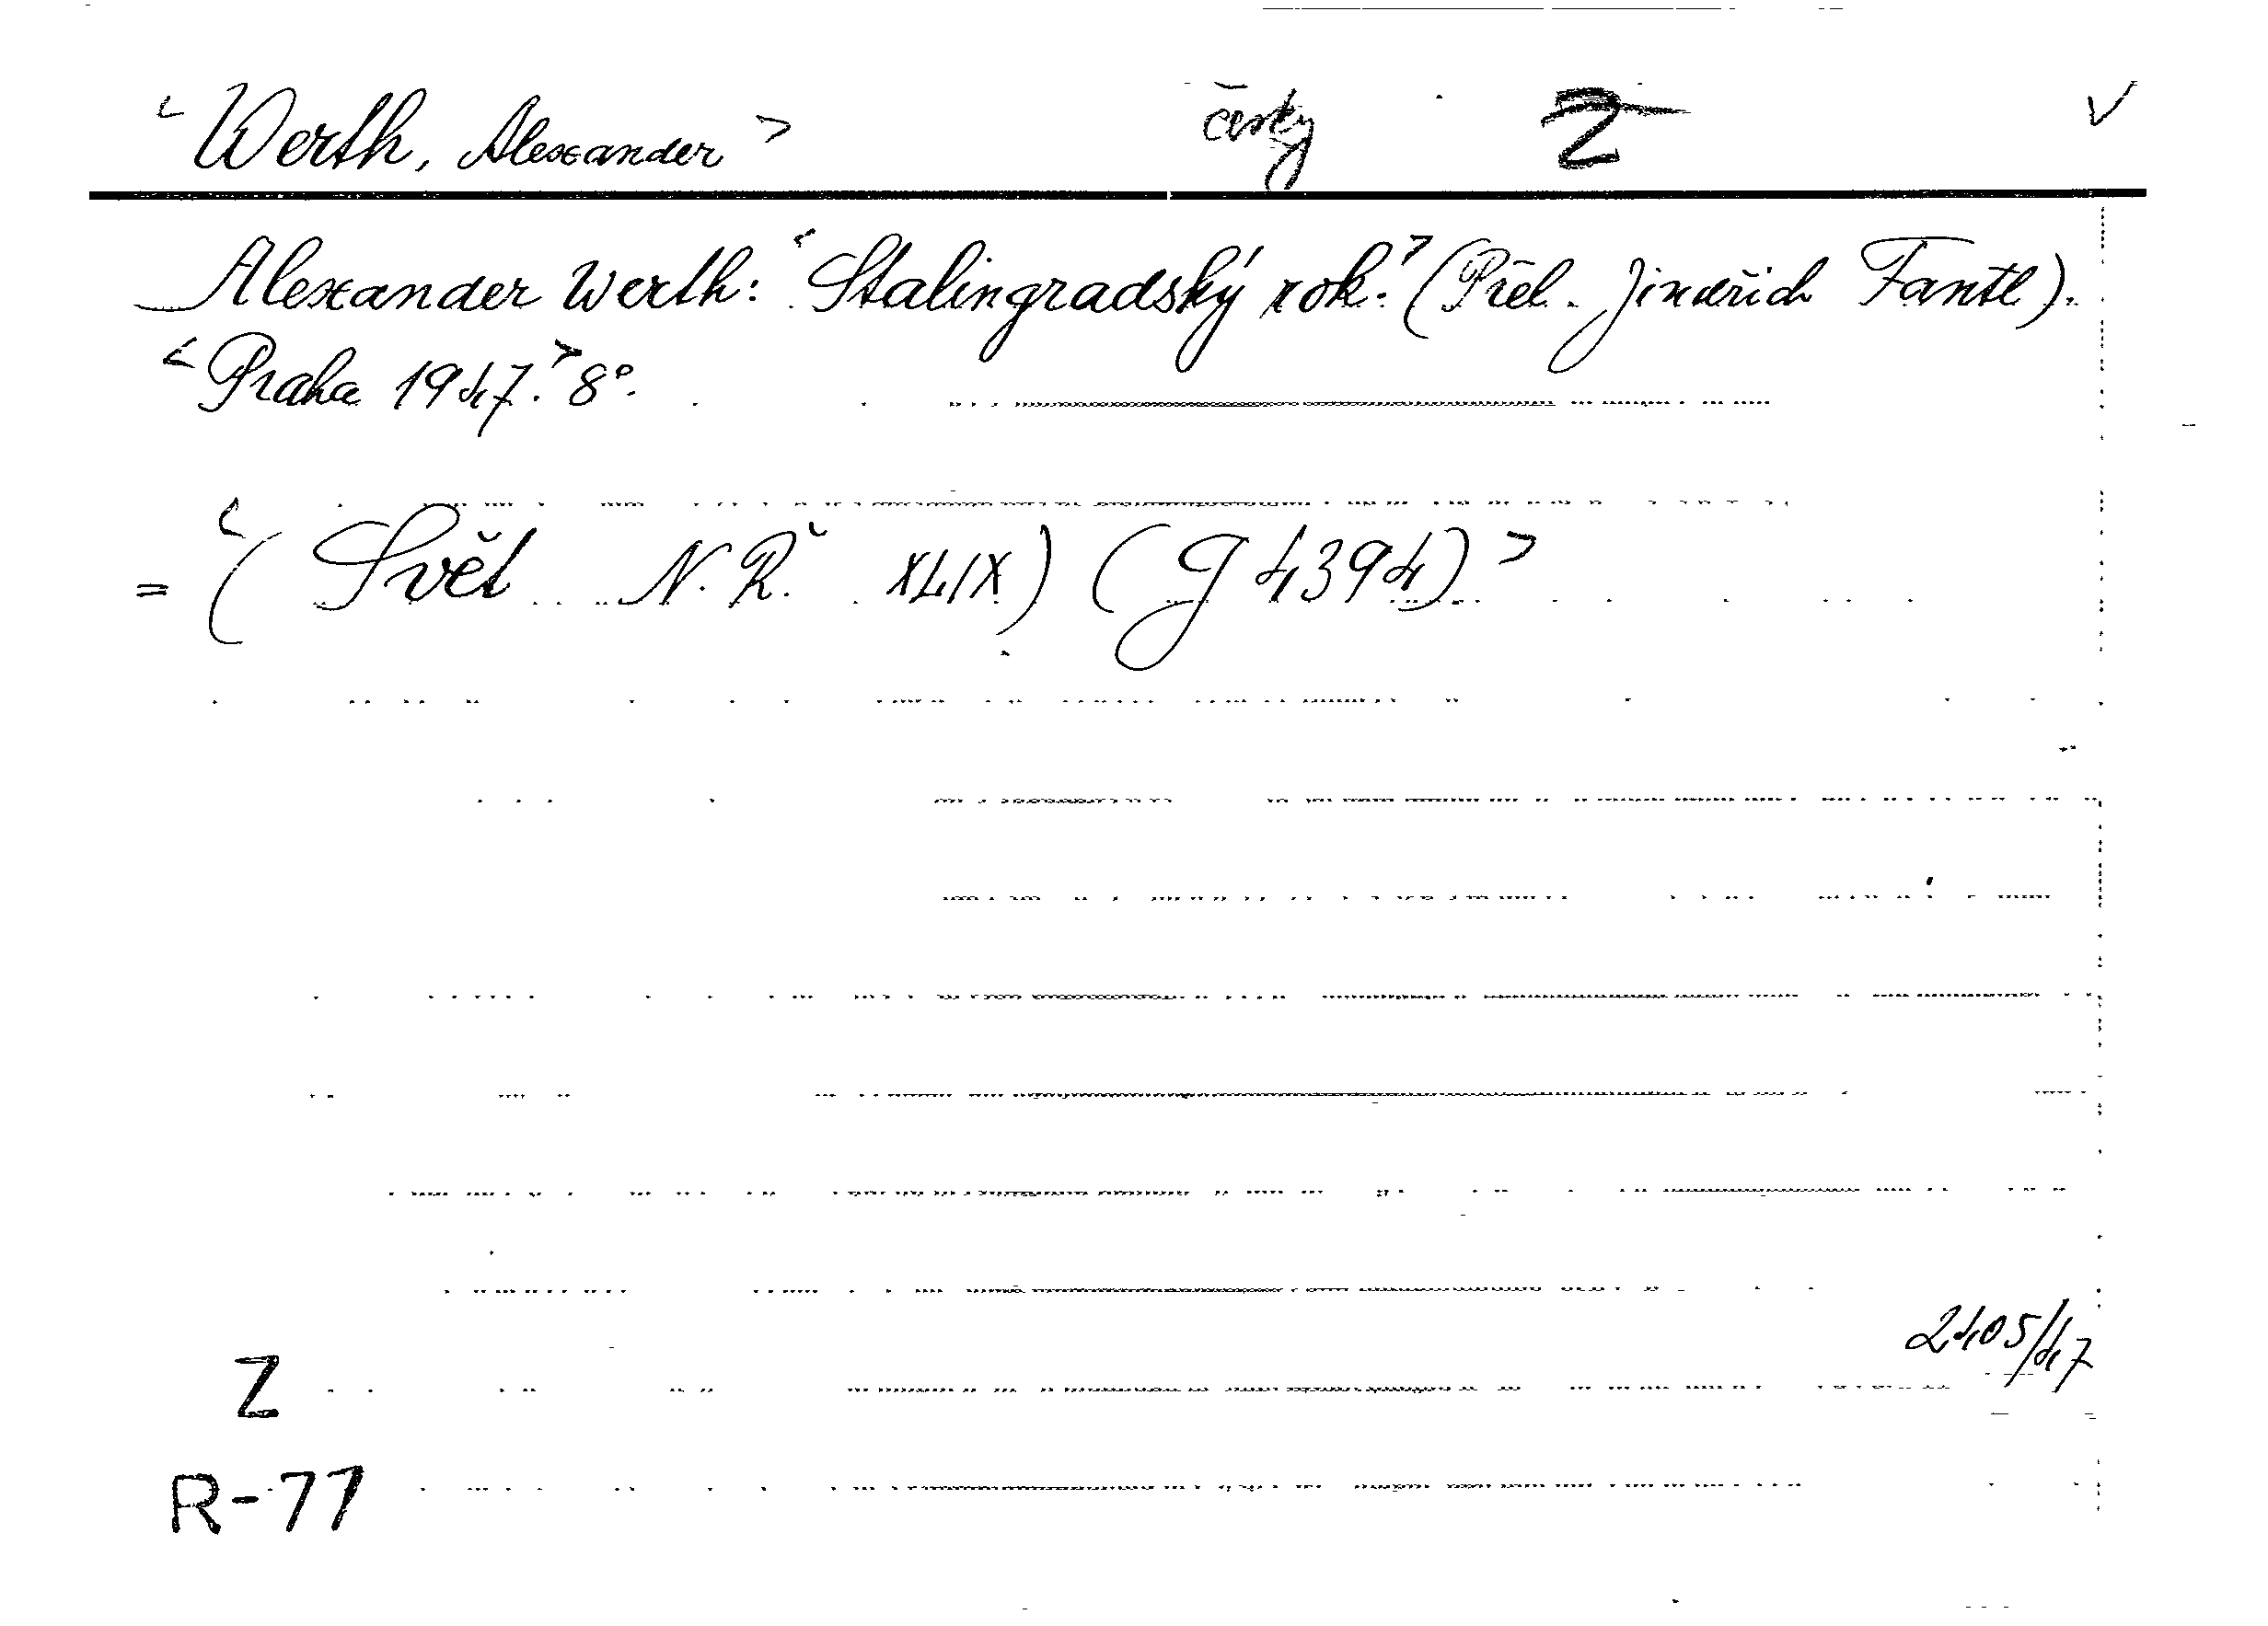 < Werth, Alexander > česky Z V
Alexander Werth: < Stalingradský rok. > (Přel. Jindřich Fantl).
< Praha 1947. > 8°.
= < (Svět N. Ř. XLIX) (G 4394) >
2405/47
Z
R-77